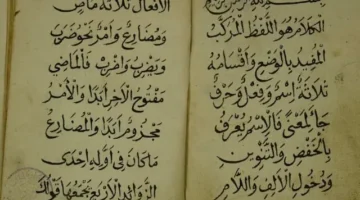 الكَلَامُ هُوَ اللَّفْظُ الْمُرَكَّبُ
الْمُفِيدُ بِالْوَضْعِ وَاَقْسَامُهُ
ثَلَاثَةٌ اِسْمٌ وَفِعْلٌ وَحَرْفٌ
جَآءَ لِمَعْنًى فَالْاِسْمُ يُعْرَفُ
بِالْخَفْضِ وَالتَّنْوِينِ
وَدُخُولِ الْاَلِفِ وَاللَّامِ
الْاَفْعَالُ ثَلَاثَةٌ مَاضٍ
وَمُضَارِعٌ وَاَمْرٌ نَحْوُ ضَرَبَ
وَيَضْرِبُ وَاضْرِبْ فَالْمَاضِي
مَفْتُوحُ الْاٰخِرِ اَبَدًا وَالْاَمْرُ
مَجْزُومٌ اَبَدًا وَالْمُضَارِعُ
مَا كَانَ فِي اَوَّلِهِ اِحْدَى
الزَّوَائِدِ الْاَرْبَعِ يَجْمَعُهَا قَوْلُكَ